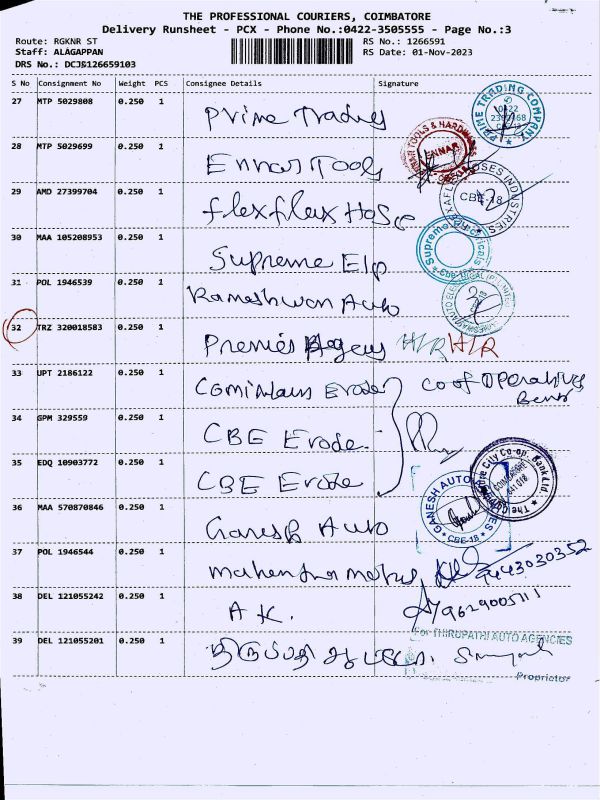 THE PROFESSIONAL COURIERS, COIMBATORE
Delivery Runsheet - PCX - Phone No.:0422-3505555 - Page No.:3
Route: RGKNR ST RS No.: 1266591
Staff: ALAGAPPAN RS Date: 01-Nov-2023
DRS No.: DCJB126659103
S No Consignment No Weight PCS Consignee Details Signature
27 MTP 5029808 0.250 1 Prime Trading
PRIME TRADING COMPANY
28 MTP 5029699 0.250 1 Ennar Tools
ENNAR TOOLS & HARDWARE
ENNAR
29 AMD 27399704 0.250 1 flexflex Hose
CBE-18
30 MAA 105208953 0.250 1 Supreme Elp
Supreme Electricals
31 POL 1946539 0.250 1 Rameshwar Auto
32 TRZ 320018583 0.250 1 Premier Agency H/R H/R
33 UPT 2186122 0.250 1 Erode Co of OPeratives
34 GPM 329559 0.250 1 CBE Erode
35 EDQ 10903772 0.250 1 CBE Erode
The City Co-op. Bank Ltd.
36 MAA 570870846 0.250 1 Ganesh Auto
GANESH AUTO
CBE-18
37 POL 1946544 0.250 1 Mahendra Motors 9443030352
38 DEL 121055242 0.250 1 A K. 9629005111
39 DEL 121055201 0.250 1 திருப்பதி ஆட்டோ
For THIRUPATHI AUTO AGENCIES
Proprietor